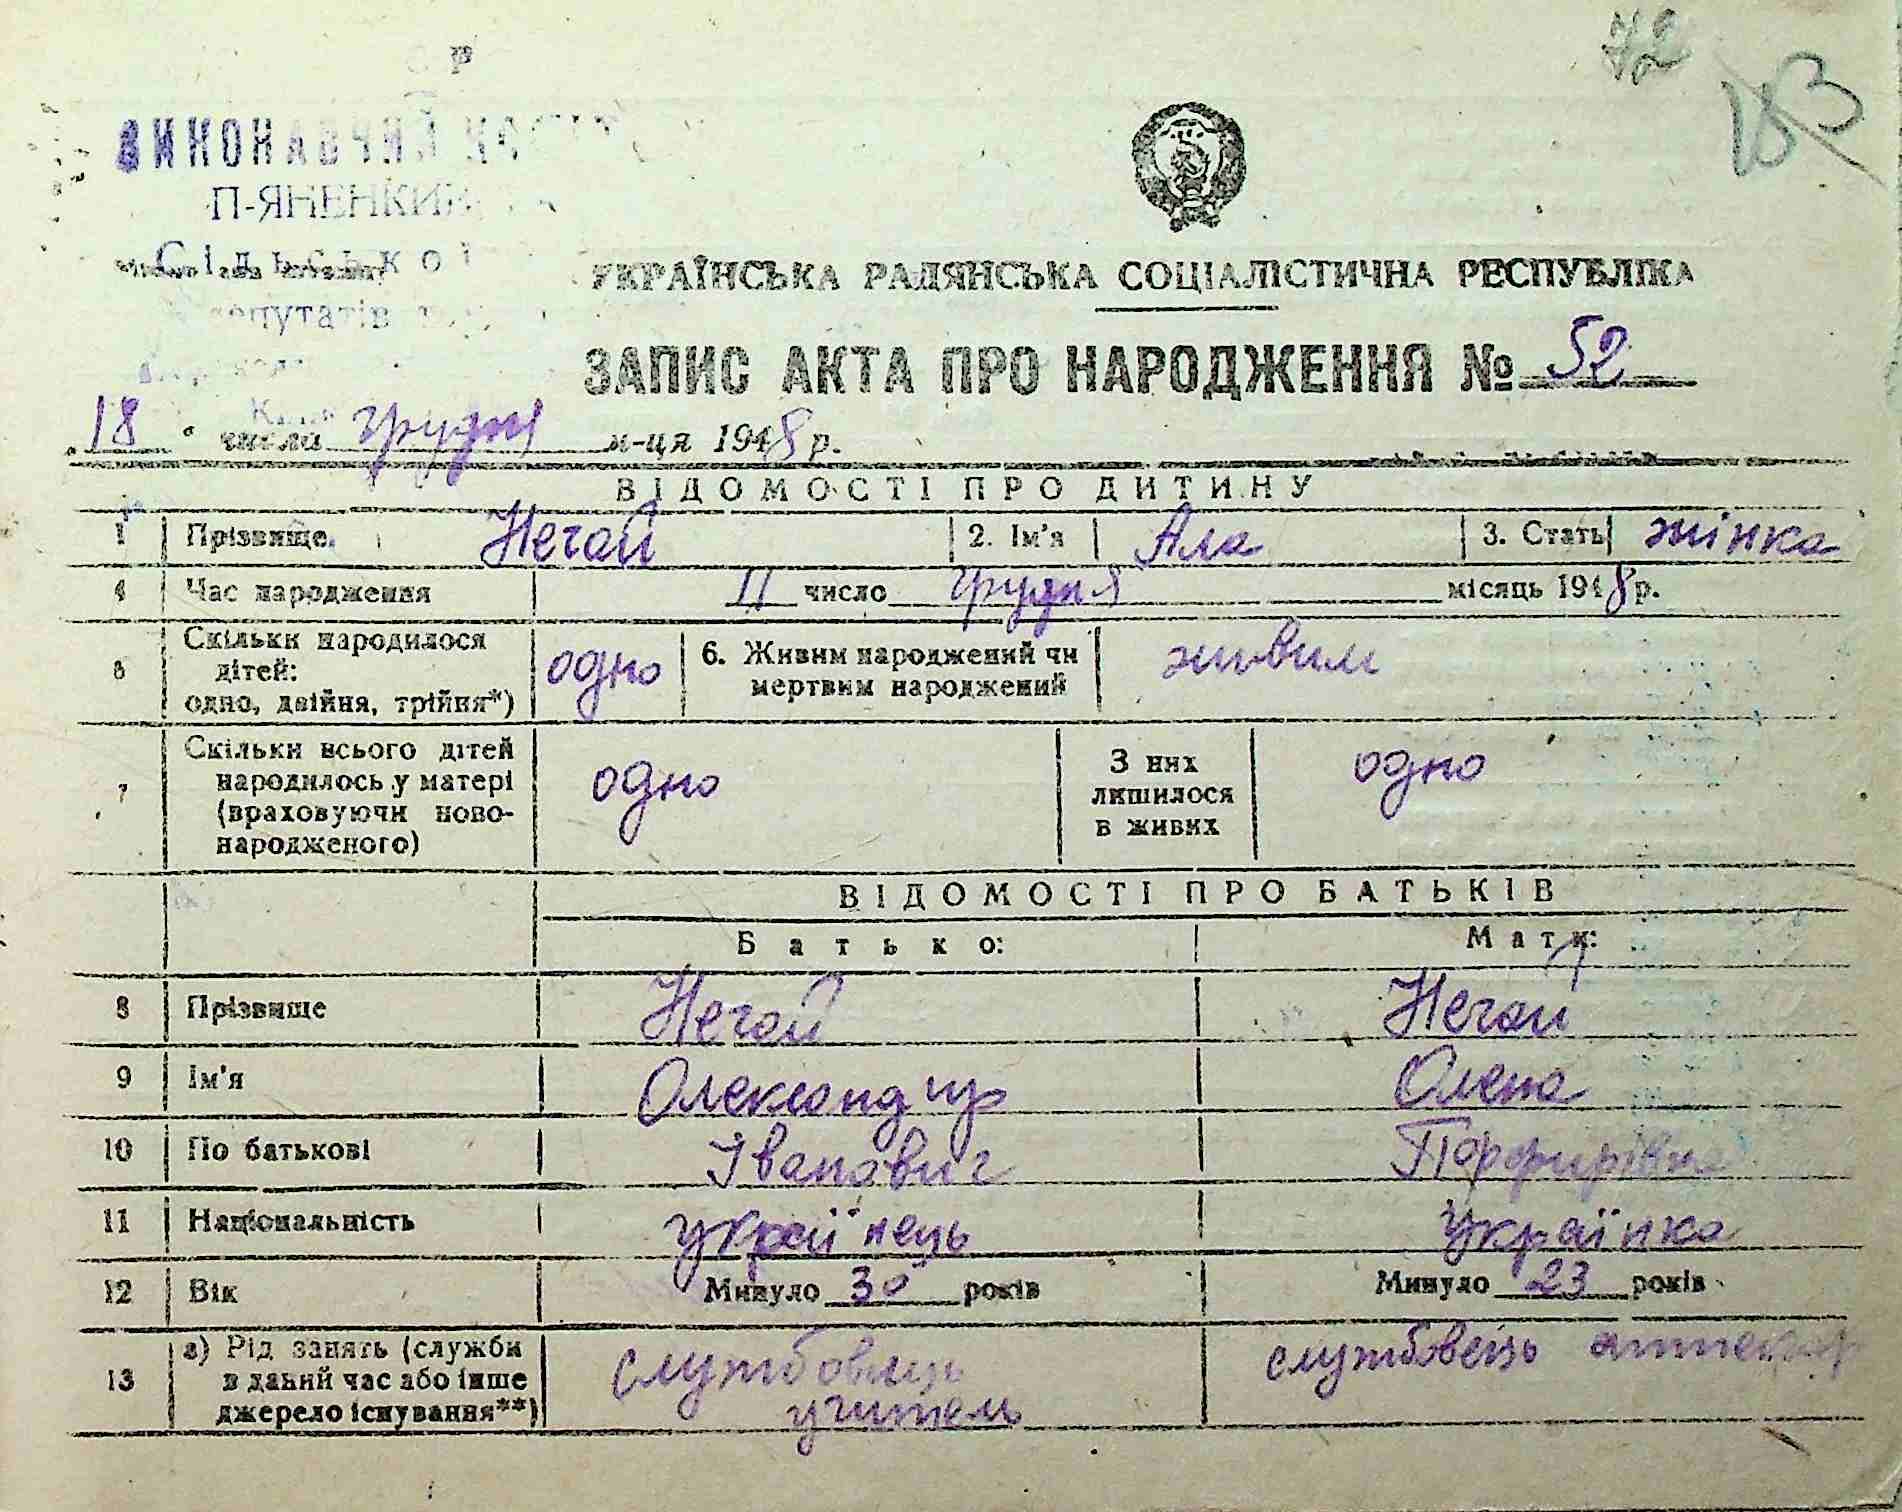 72
183
ВИКОНАВЧИЙ
П-ЯНЕНКИН
Сільської
депутатів
УКРАЇНСЬКА РАДЯНСЬКА СОЦІАЛІСТИЧНА РЕСПУБЛІКА
ЗАПИС АКТА ПРО НАРОДЖЕННЯ № 52
„18“ числа грудня м-ця 1948 р.
ВІДОМОСТІ ПРО ДИТИНУ
1 Прізвище Нечай 2. Ім'я Ала 3. Стать жінка
4 Час народження 11 число грудня місяць 1948 р.
5 Скільки народилося дітей: одно, двійня, трійня*) одно 6. Живим народжений чи мертвим народжений живим
7 Скільки всього дітей народилось у матері (враховуючи новонародженого) одно З них лишилося в живих одно
ВІДОМОСТІ ПРО БАТЬКІВ
Батько: Мати:
8 Прізвище Нечай Нечай
9 Ім'я Олександр Олена
10 По батькові Іванович Порфирівна
11 Національність українець українка
12 Вік Минуло 30 років Минуло 23 років
13 а) Рід занять (служби в даний час або інше джерело існування**) службовець учитель службовець аптекар